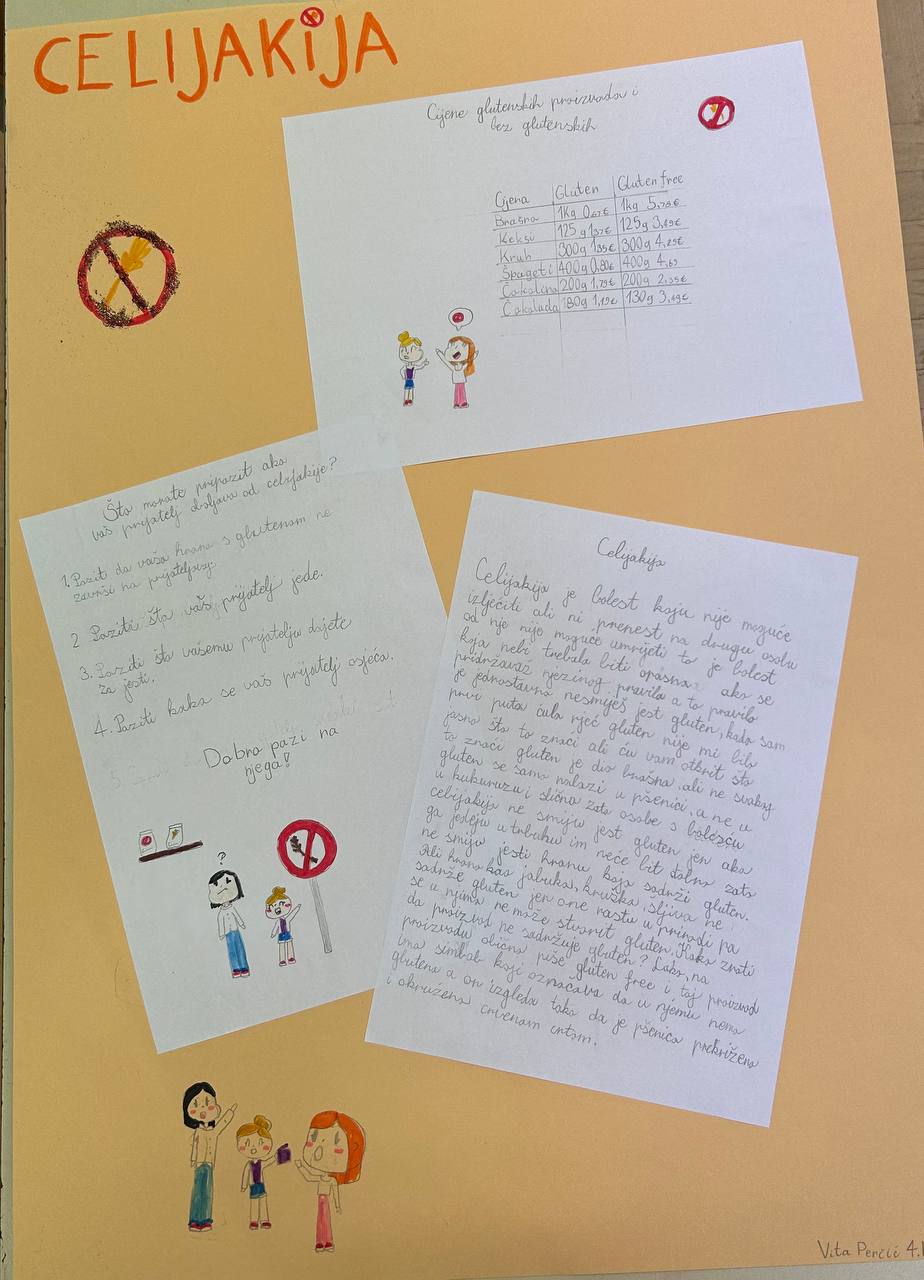 CELIJAKIJA
Cijene glutenskih proizvoda i
bez glutenskih
Cijena Gluten Gluten free
Brašno 1kg 0,67€ 1kg 5,79€
Keksi 125g 1,37€ 125g 3,89€
Kruh 300g 1,35€ 300g 4,25€
Špageti 400g 0,80€ 400g 4,69
Čokolino 200g 1,79€ 200g 2,35€
Čokolada 180g 1,19€ 130g 3,49€
Što morate pripazit ako
vaš prijatelj boljava od celijakije?
1. Pazit da vaša hrana s glutenom ne
završi na prijateljevoj.
2 Paziti što vaš prijatelj jede.
3. Paziti što vašemu prijatelju dajete
za jesti.
4. Paziti kako se vaš prijatelj osjeća.
Dobro pazi na
njega!
?
Celijakija
Celijakija je bolest koju nije moguće
izlječiti ali ni prenest na drugu osobu
od nje nije moguće umrijeti to je bolest
koja nebi trebala biti opasna ako se
pridržavaš njezinog pravila a to pravilo
je jednostavno nesmiješ jest gluten, kada sam
prvi puta čula rječ gluten nije mi bilo
jasno što to znači ali ću vam otkrit što
to znači gluten je dio brašna ali ne svakog
gluten se samo nalazi u pšenici, a ne u
u kukuruzu i slično zato osobe s bolešću
celijakije ne smiju jest gluten jer ako
ga jedeju u trbuhu im neće bit dobro zato
ne smiju jesti hranu koja sadrži gluten.
Ali hrana kao jabuka, kruška, šljiva ne
sadrže gluten jer one rastu u prirodi pa
se u njima nemože stvorit gluten. Kako znati
da proizvod ne sadržuje gluten? Lako, na
proizvodu obično piše gluten free i taj proizvod
ima simbol koji označava da u njemu nema
glutena a on izgleda tako da je pšenica prekrižena
i okružena crvenom crtom.
Vita Perčić 4.